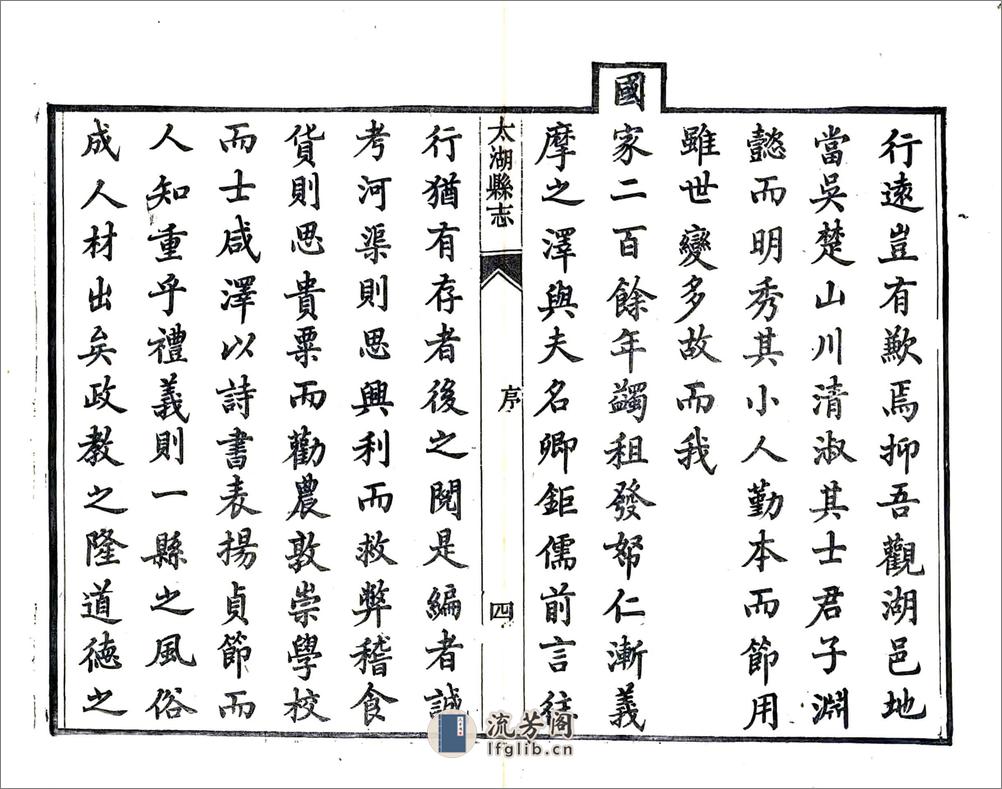 行遠豈有歉焉抑吾觀湖邑地
當吳楚山川清淑其士君子淵
懿而明秀其小人勤本而節用
雖世變多故而我
國家二百餘年蠲租發帑仁漸義
摩之澤與夫名卿鉅儒前言往
太湖縣志 序 四
行猶有存者後之閱是編者誠
考河渠則思興利而救弊稽食
貨則思貴粟而勸農敦崇學校
而士咸澤以詩書表揚貞節而
人知重乎禮義則一縣之風俗
成人材出矣政教之隆道德之
流芳阁
lfglib.cn